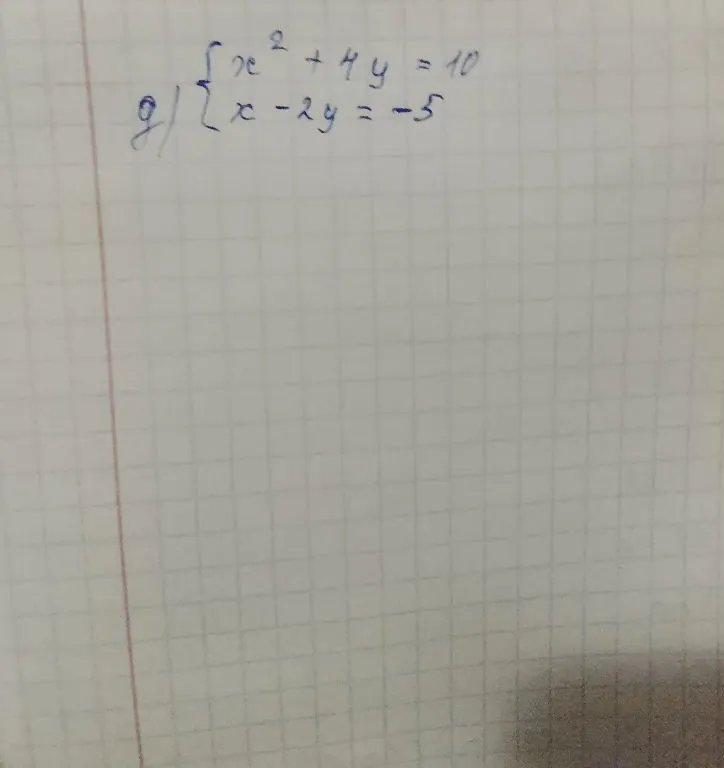 x² + 4y = 10
g) x - 2y = -5